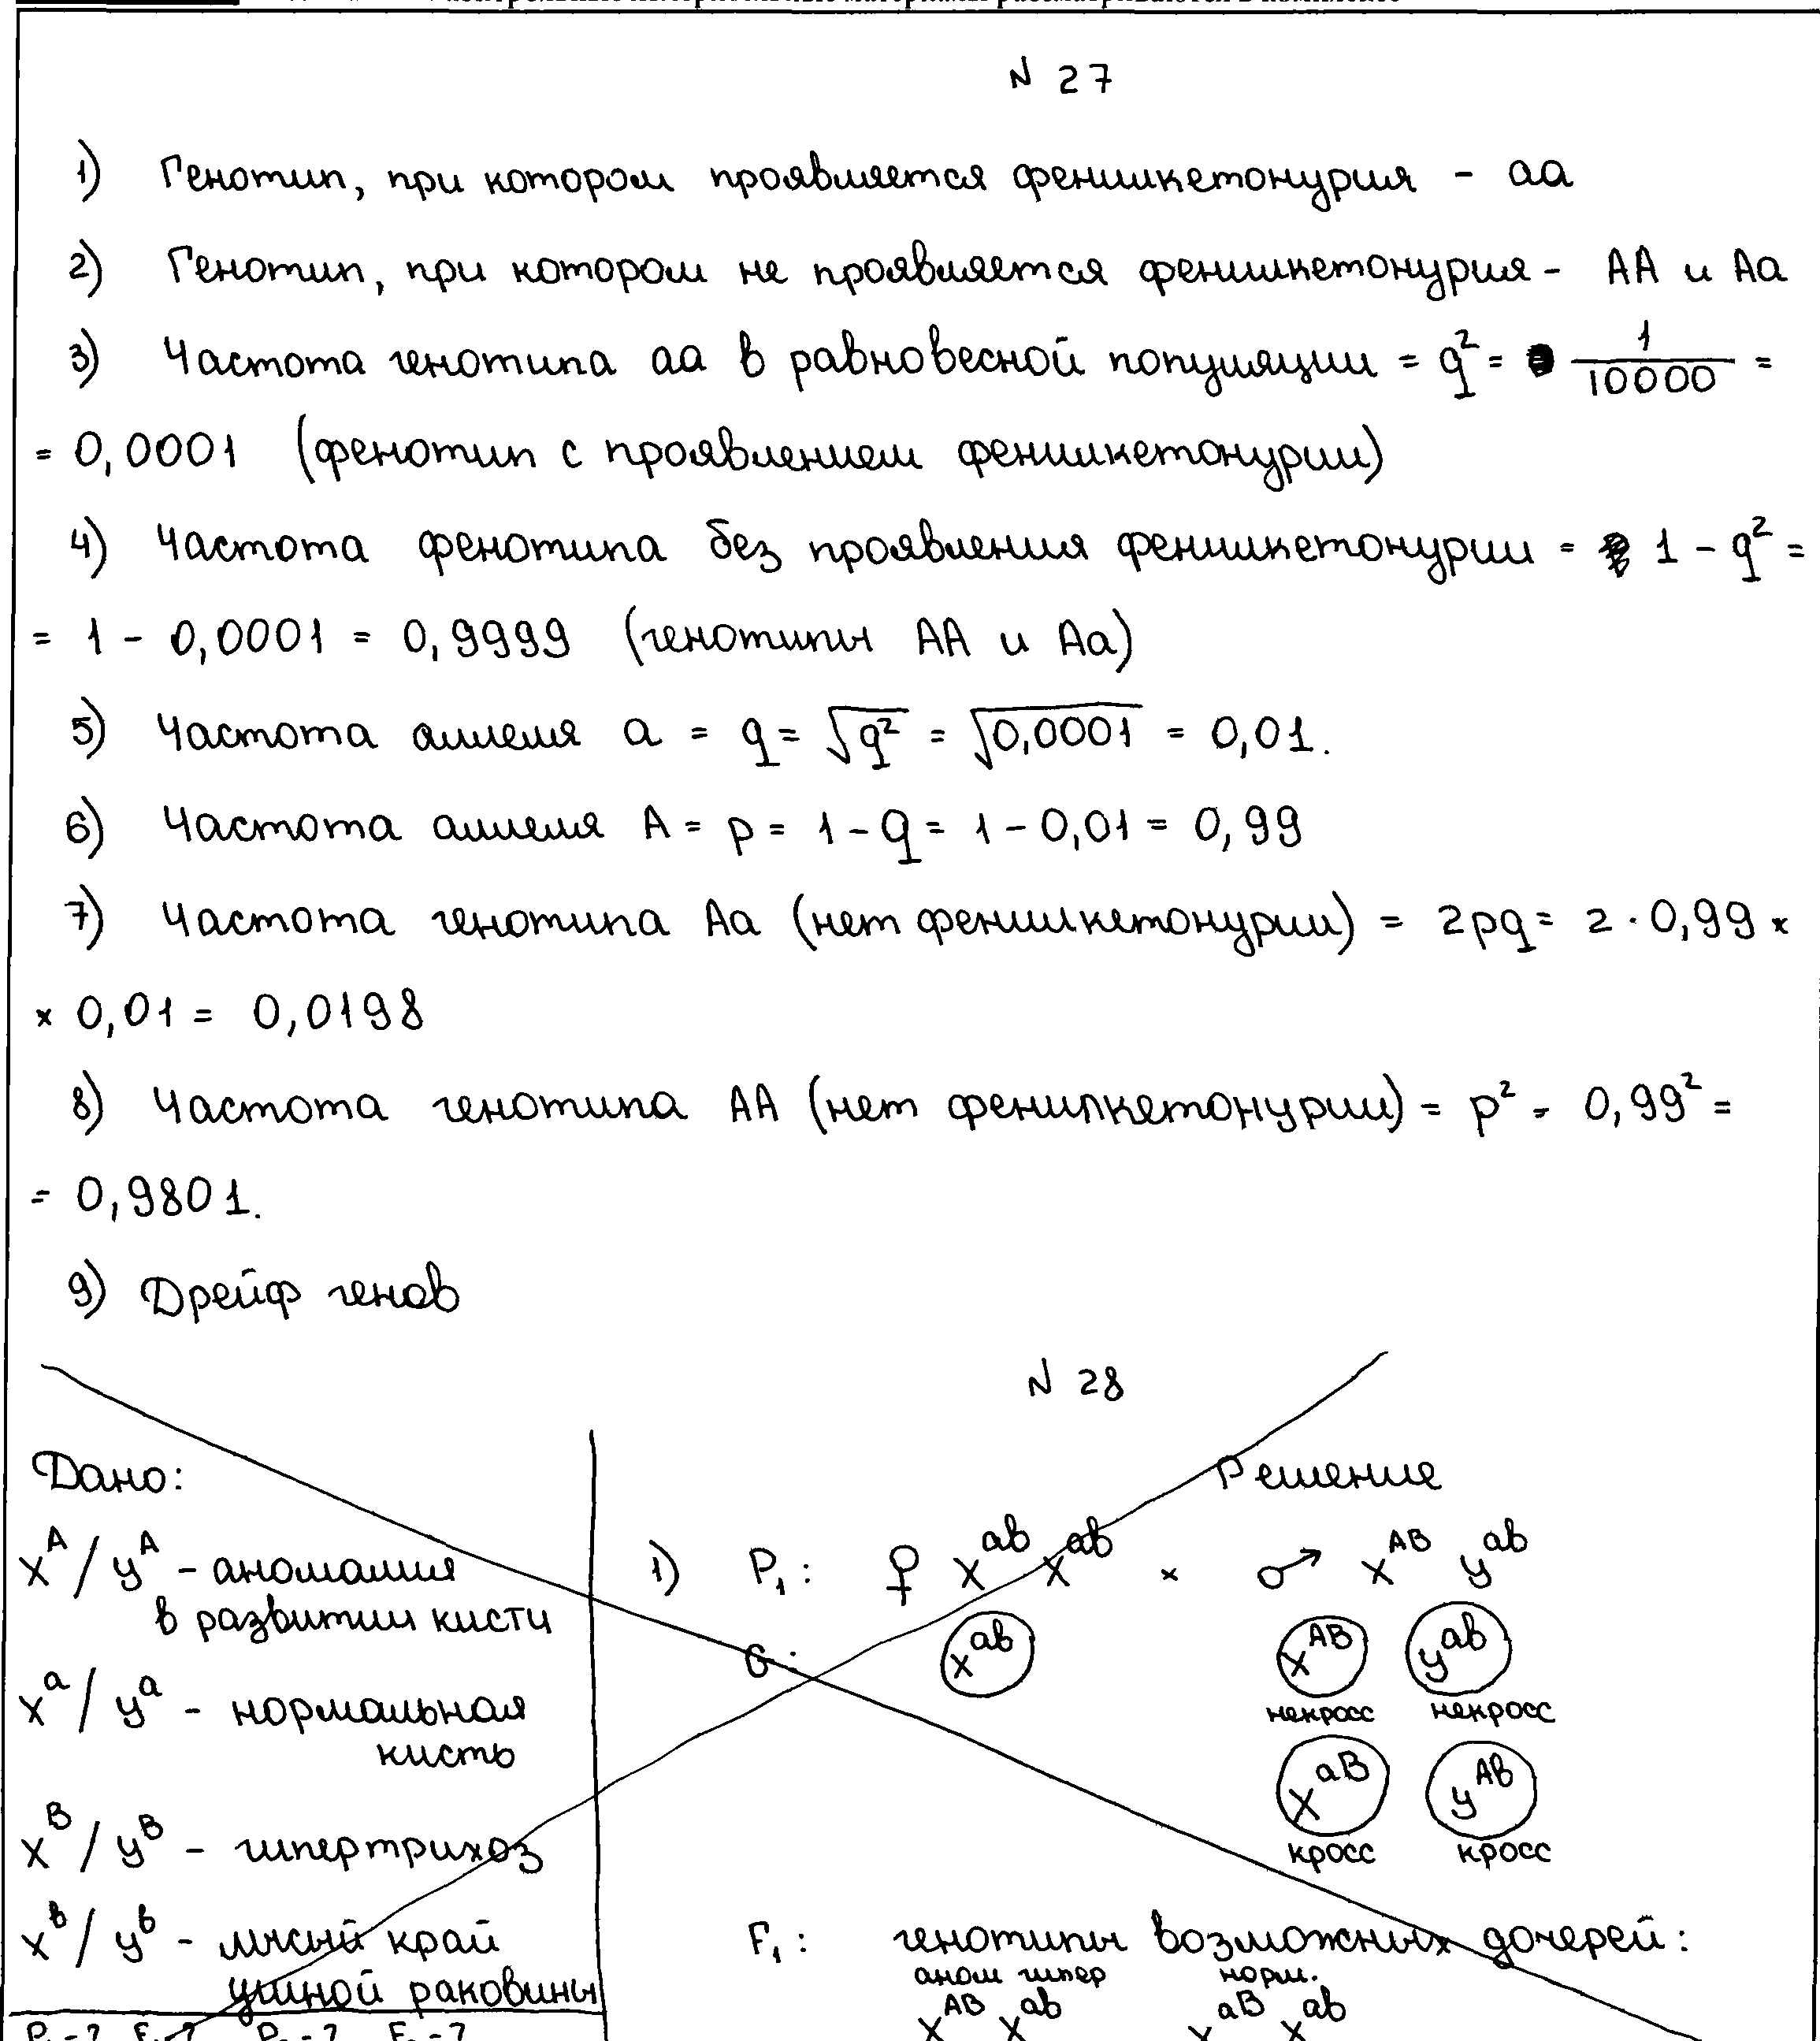 N 27
1) Генотип, при котором проявляется фенилкетонурия - аа
2) Генотип, при котором не проявляется фенилкетонурия - АА и Аа
3) Частота генотипа аа в равновесной популяции = q² = 1/10000 =
= 0,0001 (фенотип с проявлением фенилкетонурии)
4) Частота фенотипа без проявления фенилкетонурии = 1 - q² =
= 1 - 0,0001 = 0,9999 (генотипы АА и Аа)
5) Частота аллеля а = q = √q² = √0,0001 = 0,01.
6) Частота аллеля А = p = 1 - q = 1 - 0,01 = 0,99
7) Частота генотипа Аа (нет фенилкетонурии) = 2pq = 2 · 0,99 ×
× 0,01 = 0,0198
8) Частота генотипа АА (нет фенилкетонурии) = p² = 0,99² =
= 0,9801.
9) Дрейф генов
N 28
Дано:
Решение
X^A / Y^A - аномалия
в развитии кисти
X^a / Y^a - нормальная
кисть
X^B / Y^B - гипертрихоз
X^b / Y^b - лысый край
ушной раковины
P₁ - ? F₁ - ? P₂ - ? F₂ - ?
1) P₁: ♀ X^ab X^ab × ♂ X^AB Y^ab
G: X^ab X^AB Y^ab
некросс некросс
X^aB Y^Ab
кросс кросс
F₁: генотипы возможных дочерей:
аном гипер норм.
X^AB X^ab X^aB X^ab